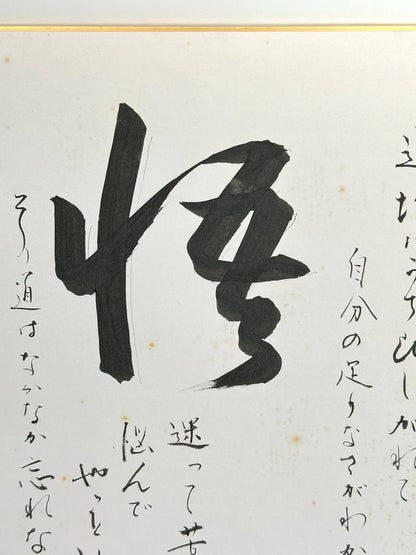 うちひしがれて
自分の足りなさがわか
悟
迷って苦
悩んで
やっと
その道はなかなか忘れな